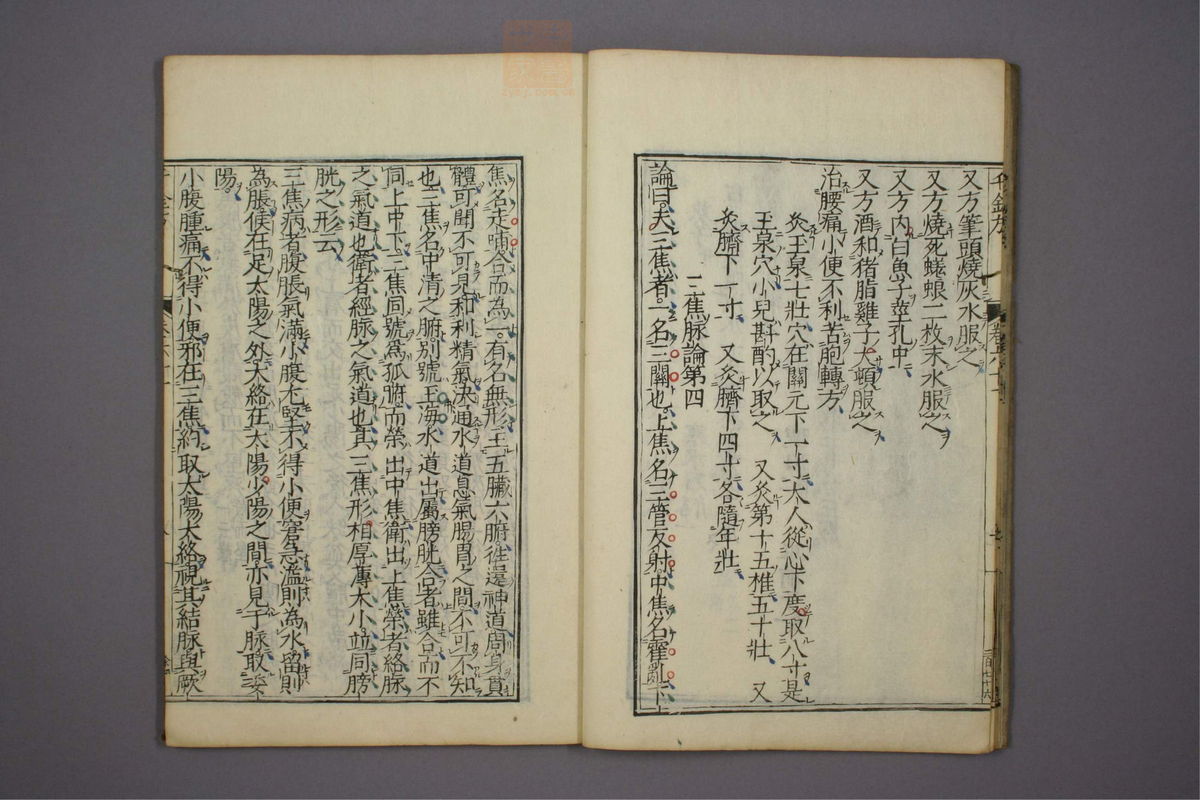 又方筆頭燒灰水服之
又方燒死蜣蜋二枚末水服之
又方内白魚子莖孔中
又方酒和猪脂雞子大頓服之
治腰痛小便不利苦胞轉方
灸玉泉七壯穴在關元下一寸大人從心下度取八寸是
玉泉穴小兒斟酌以取之 又灸第十五椎五十壯 又
灸臍下一寸 又灸臍下四寸各隨年壯
三焦脉論第四
論曰夫三焦者一名三關也上焦名三管反射中焦名霍亂下
焦名走哺合而為一有名無形主五臟六腑往還神道周身貫
體可聞不可見和利精氣決通水道息氣腸胃之間不可不知
也三焦名中清之腑別號玉海水道出屬膀胱合者雖合而不
同上中下三焦同號爲孤腑而榮出中焦衛出上焦榮者絡脉
之氣道也衛者經脉之氣道也其三焦形相厚薄大小竝同膀
胱之形云
三焦病者腹脹氣滿小腹尤堅不得小便窘急溢則為水留則
為脹候在足太陽之外大絡在太陽少陽之間亦見于脉取委
陽
小腹腫痛不得小便邪在三焦約取太陽大絡視其結脉與厥